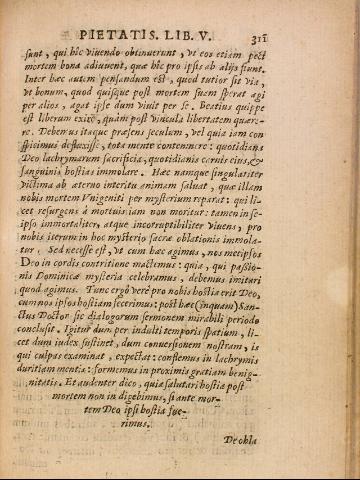 PIETATIS. LIB. V. 311
sunt, qui hic viuendo obtinuerunt, vt eos etiam post
mortem bona adiuuent, quæ hic pro ipsis ab alijs fiunt.
Inter hæc autem pensandum est, quod tutior sit via,
vt bonum, quod quisque post mortem suam sperat agi
per alios, agat ipse dum viuit per se. Beatius quippe
est liberum exire, quàm post vincula libertatem quære-
re. Debemus itaque præsens seculum, vel quia iam con
spicimus defluxisse, tota mente contemnere: quotidiana
Deo lachrymarum sacrificia, quotidianis carnis eius, &
sanguinis hostias immolare. Hæc namque singulariter
victima ab æterno interitu animam saluat, quæ illam
nobis mortem Vnigeniti per mysterium reparat: qui li-
cet resurgens à mortuis iam non moritur: tamen in se-
ipso immortaliter, atque incorruptibiliter viuens, pro
nobis iterum in hoc mysterio sacræ oblationis immola-
tur. Sed necesse est, vt cum hæc agimus, nos metipsos
Deo in cordis contritione mactemus: quia, qui passio-
nis Dominicæ mysteria celebramus, debemus imitari
quod agimus. Tunc ergò verè pro nobis hostia erit Deo,
cum nos ipsos hostiam fecerimus: post hæc (inquam) San-
ctus Doctor sic dialogorum sermonem mirabili periodo
conclusit. Igitur dum per indulti temporis spatium, li-
cet dum iudex sustinet, dum conuersionem nostram, is
qui culpas examinat, expectat: conflemus in lachrymis
duritiam mentis: formemus in proximis gratiam benig-
nitatis. Et audenter dico, quia salutari hostia post
mortem non indigebimus, si ante mor-
tem Deo ipsi hostia fue-
rimus.
De obla